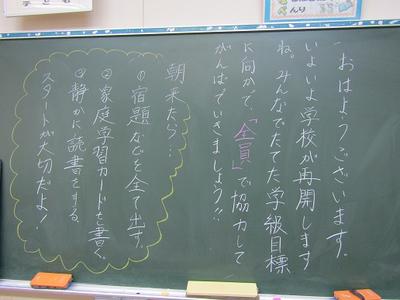 おはようございます。
いよいよ学校が再開します
ね。みんなでたてた学級目標
に向かって、「全員」で協力して
がんばっていきましょう!!
朝来たら…
①宿題などを全て出す。
②家庭学習カードを書く。
③静かに読書をする。
スタートが大切だよ!